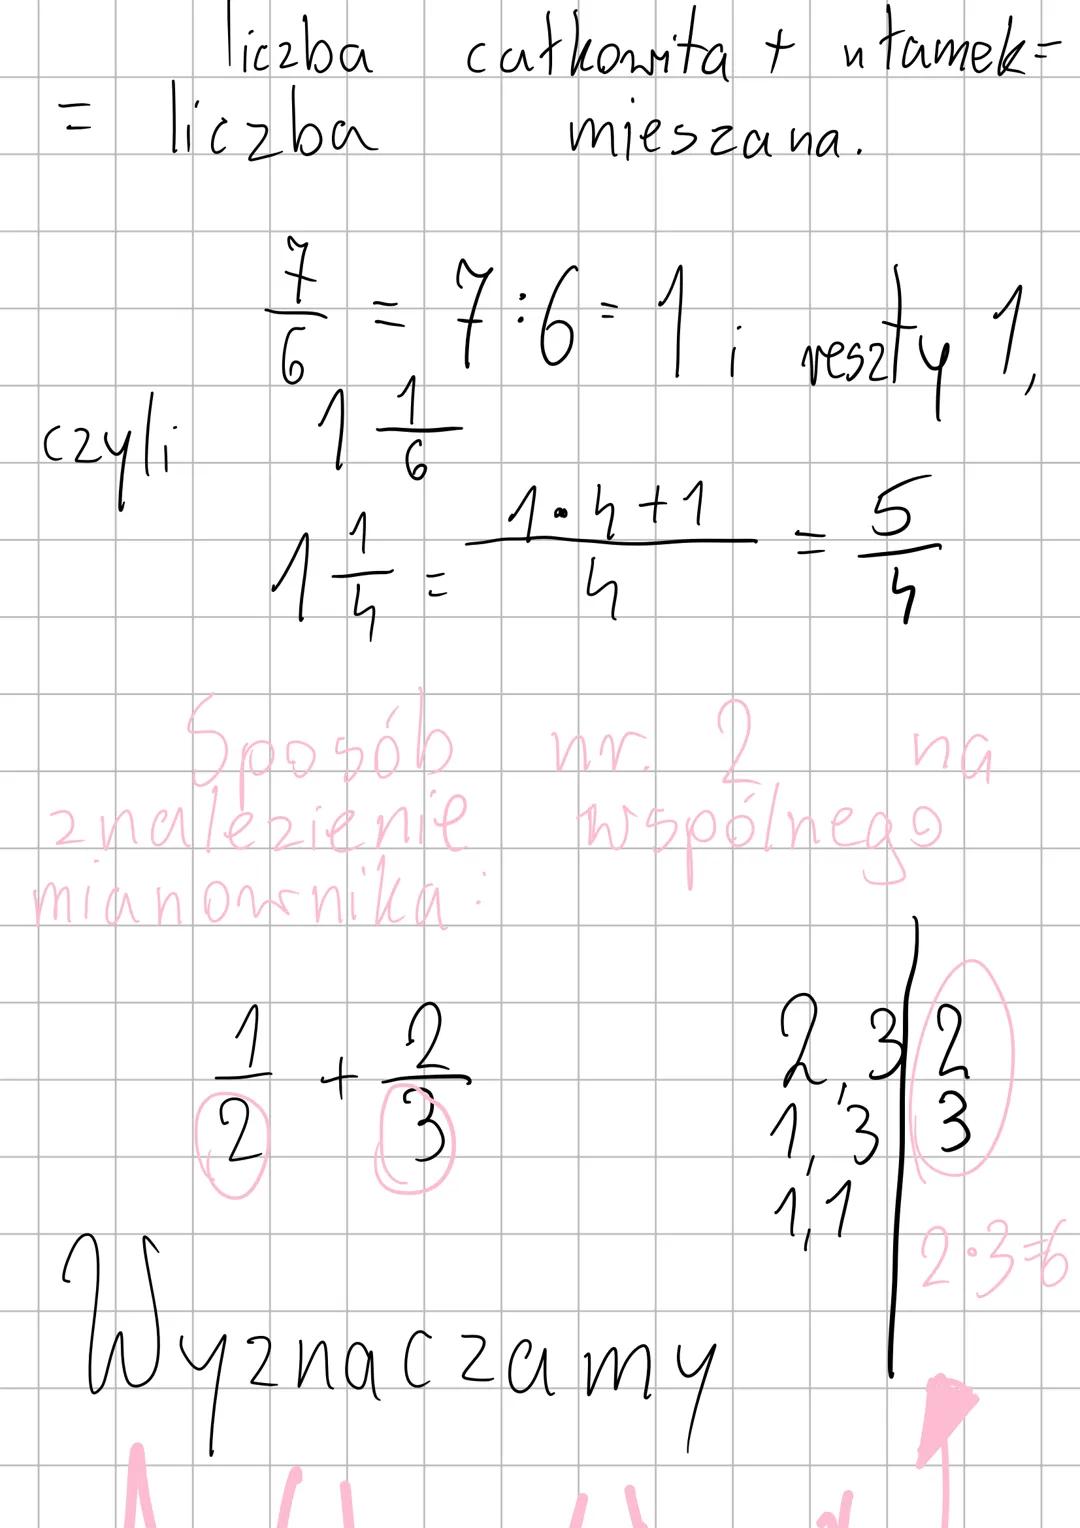 liczba całkowita + ułamek=
= liczba mieszana.
7/6 = 7:6 = 1 i reszty 1,
czyli 1 1/6
1 1/4 = (1·4+1)/4 = 5/4
Sposób nr. 2 na
znalezienie wspólnego
mianownika:
1/2 + 2/3
2,3|2
1,3|3
1,1|
2·3=6
Wyznaczamy